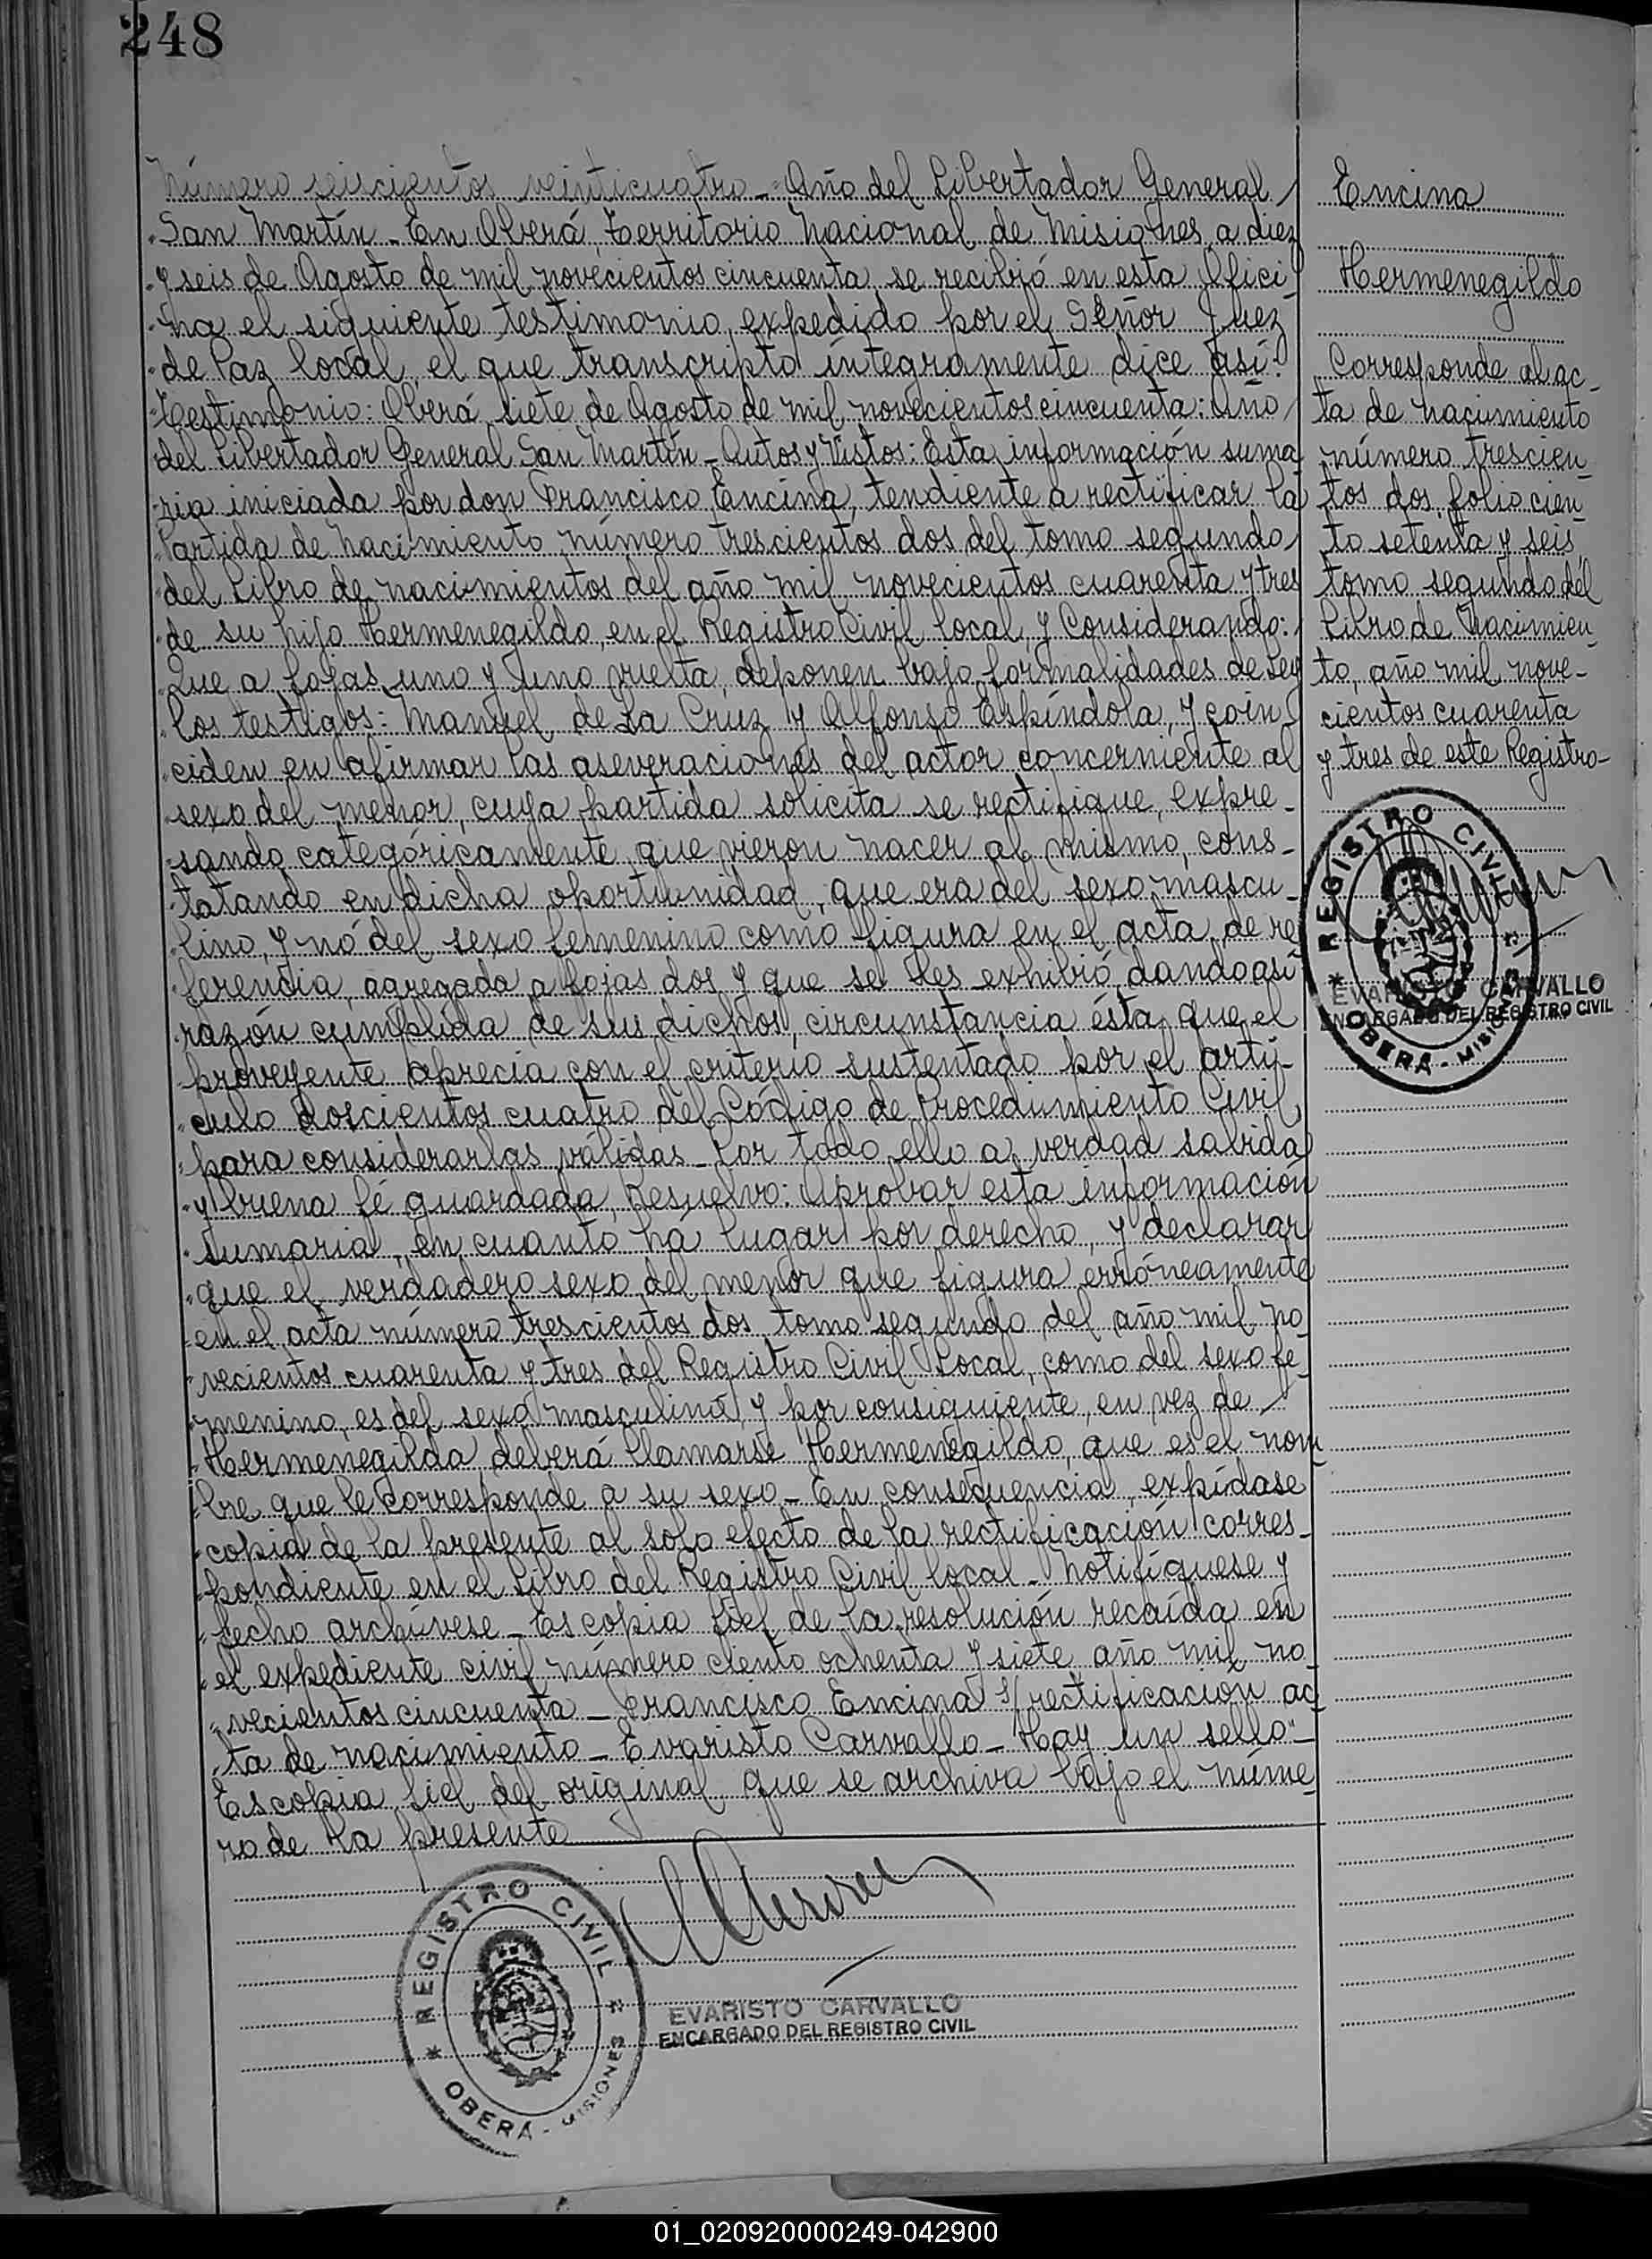 248
Número seiscientos veinticuatro - Año del Libertador General
San Martín - En Oberá, Territorio Nacional de Misiones, a diez
y seis de Agosto de mil novecientos cincuenta, se recibió en esta Ofici-
na el siguiente testimonio, expedido por el Señor Juez
de Paz local, el que transcripto íntegramente dice así:
"Testimonio: Oberá, siete de Agosto de mil novecientos cincuenta: Año
del Libertador General San Martín - Autos y Vistos: Esta información suma-
ria iniciada por don Francisco Encina, tendiente a rectificar la
Partida de Nacimiento número trescientos dos del tomo segundo
del Libro de nacimientos del año mil novecientos cuarenta y tres
de su hijo Hermenegildo, en el Registro Civil local, y Considerando:
Que a fojas uno y uno vuelta, deponen bajo formalidades de Ley
los testigos: Manuel de La Cruz y Alfonso Espíndola, y coin-
ciden en afirmar las aseveraciones del actor concerniente al
sexo del menor, cuya partida solicita se rectifique, expre-
sando categóricamente que vieron nacer al mismo, cons-
tatando en dicha oportunidad, que era del sexo mascu-
lino, y nó del sexo femenino como figura en el acta de re-
ferencia, agregada a fojas dos y que se les exhibió, dando así
razón cumplida de sus dichos, circunstancia ésta que el
proveyente aprecia con el criterio sustentado por el artí-
culo doscientos cuatro del Código de Procedimiento Civil,
para considerarlas válidas - Por todo ello a verdad sabida
y buena fé guardada, Resuelvo: Aprobar esta información
sumaria, en cuanto há lugar por derecho, y declarar
que el verdadero sexo del menor que figura erróneamente
en el acta número trescientos dos, tomo segundo del año mil no-
vecientos cuarenta y tres del Registro Civil Local, como del sexo fe-
menino, es del sexo masculino, y por consiguiente, en vez de
Hermenegilda, deberá llamarse Hermenegildo, que es el nom-
bre que le corresponde a su sexo - En consecuencia, expídase
copia de la presente al solo efecto de la rectificación corres-
pondiente en el Libro del Registro Civil local - Notifíquese y
fecho archívese - Es copia fiel de la resolución recaída en
el expediente civil número ciento ochenta y siete año mil no-
vecientos cincuenta - Francisco Encina s/ rectificación ac-
ta de nacimiento - Evaristo Carvallo - Hay un sello" -
Es copia fiel del original que se archiva bajo el núme-
ro de la presente
REGISTRO CIVIL
OBERÁ - MISIONES
EVARISTO CARVALLO
ENCARGADO DEL REGISTRO CIVIL
Encina
Hermenegildo
Corresponde al ac-
ta de nacimiento
número trescien-
tos dos, folio cien-
to setenta y seis,
tomo segundo del
Libro de Nacimien-
to, año mil nove-
cientos cuarenta
y tres de este Registro-
REGISTRO CIVIL
OBERÁ - MISIONES
EVARISTO CARVALLO
ENCARGADO DEL REGISTRO CIVIL
01_020920000249-042900